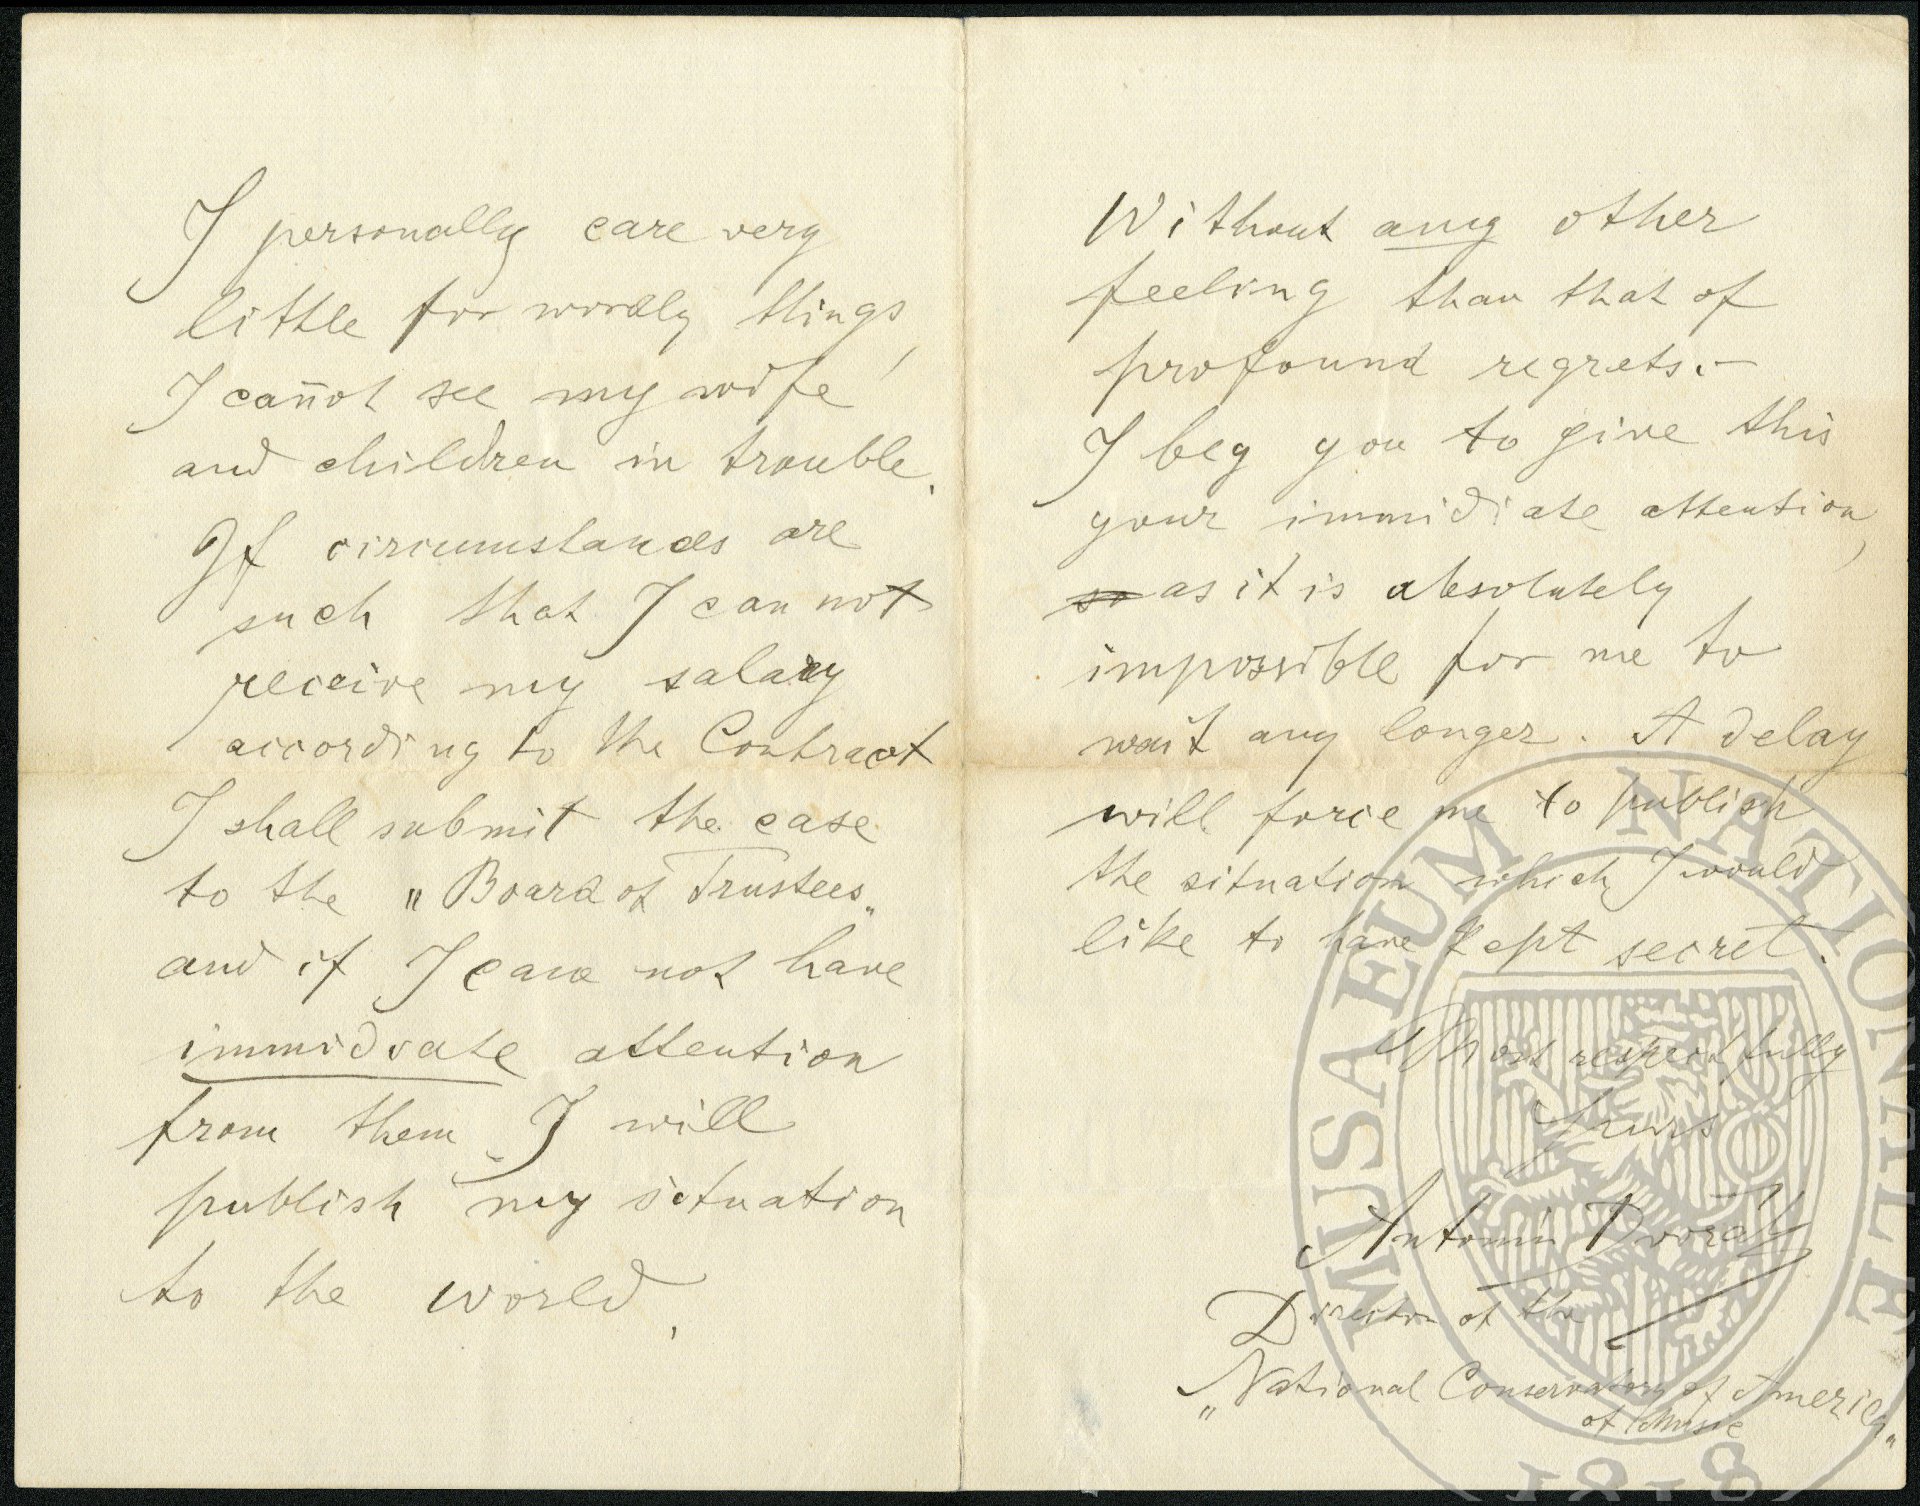 I personally care very
little for wordly things,
I can̄ot see my wife
and children in trouble.
If circumstances are
such that I can not
receive my salary
according to the Contract
I shall submit the case
to the „Board of Trustees„
and if I can not have
immidiate attention
from them I will
publish my situation
to the world.
Without any other
feeling than that of
profound regrets.—
I beg you to give this
your immidiate attention,
so as it is absolutely
impossible for me to
wait any longer. A delay
will force me to publish
the situation which I would
like to have kept secret.
Most respectfully
Yours
Antonín Dvořák
Director of the
„National Conservatory of America„
of Music
MUSAEUM NATIONALE
1818